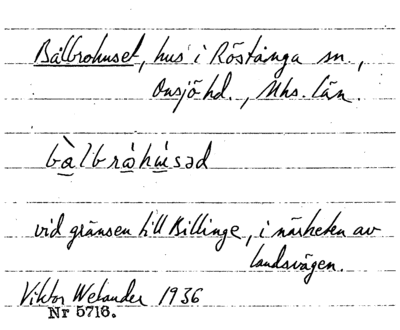 Bålbrohuset, hus i Röstånga sn.,
Onsjö hd., Mhs. län.
bàlbrǻhúsəd
vid gränsen till Billinge, i närheten av
landsvägen.
Viktor Welander 1936
Nr 5716.